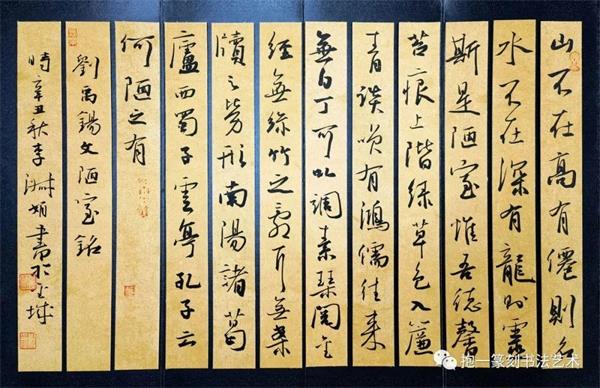 山不在高有僊則名
水不在深有龍則靈
斯是陋室惟吾德馨
苔痕上階綠草色入簾
青談笑有鴻儒往来
無白丁可以調素琴閱金
經無絲竹之亂耳無案
牘之勞形南陽諸葛
廬西蜀子雲亭孔子云
何陋之有
劉禹錫文陋室銘
時辛丑秋李淑娟書於金城
抱一篆刻书法艺术